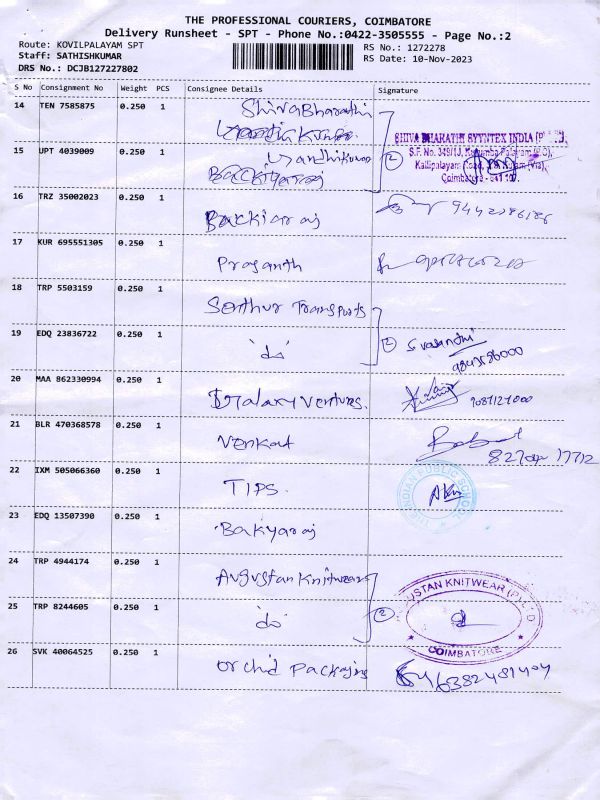 THE PROFESSIONAL COURIERS, COIMBATORE
Delivery Runsheet - SPT - Phone No.:0422-3505555 - Page No.:2
Route: KOVILPALAYAM SPT
RS No.: 1272278
Staff: SATHISHKUMAR
RS Date: 10-Nov-2023
DRS No.: DCJB127227802
S No Consignment No Weight PCS Consignee Details Signature
14 TEN 7585875 0.250 1 ShivaBharathi
SHIVA BHARATHI SYYNTEX INDIA
15 UPT 4039009 0.250 1 2
S.F. No. 349/1J,
Kallipalayam Road,
Coimbatore - 641 107.
16 TRZ 35002023 0.250 1 Backiaraj
17 KUR 695551305 0.250 1 Prasanth
18 TRP 5503159 0.250 1 Sarthur Transports
19 EDQ 23836722 0.250 1 'do' 2 S Vasandhi
20 MAA 862330994 0.250 1 Galaxy Ventures.
21 BLR 470368578 0.250 1 Venkat
22 IXM 505066360 0.250 1 TIPS.
THE INDIAN PUBLIC SCHOOL
23 EDQ 13507390 0.250 1 Bakyaraj
24 TRP 4944174 0.250 1 Augustan Knitwears
AUGUSTAN KNITWEAR (P) LTD
25 TRP 8244605 0.250 1 'do' 2
COIMBATORE
26 SVK 40064525 0.250 1 Orchid Packaging 6382481404